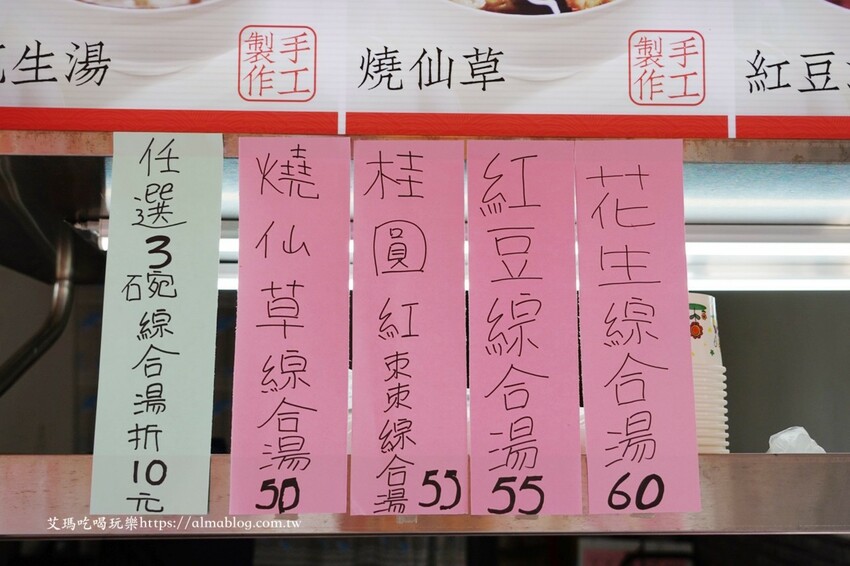 生湯
手工
製作
燒仙草
手工
製作
紅豆
花生綜合湯
60
紅豆綜合湯
55
桂圓紅棗棗綜合湯
55
燒仙草綜合湯
50
任選3碗綜合湯折10元
艾瑪吃喝玩樂https://almablog.com.tw